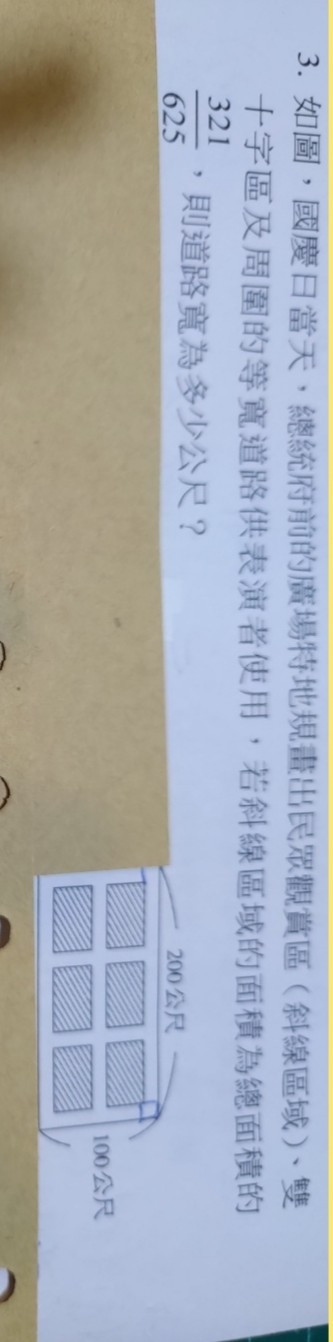 3. 如圖，國慶日當天，總統府前的廣場特地規畫出民眾觀賞區（斜線區域）、雙
十字區及周圍的等寬道路供表演者使用，若斜線區域的面積為總面積的
321
625
，則道路寬為多少公尺？
200公尺
100公尺